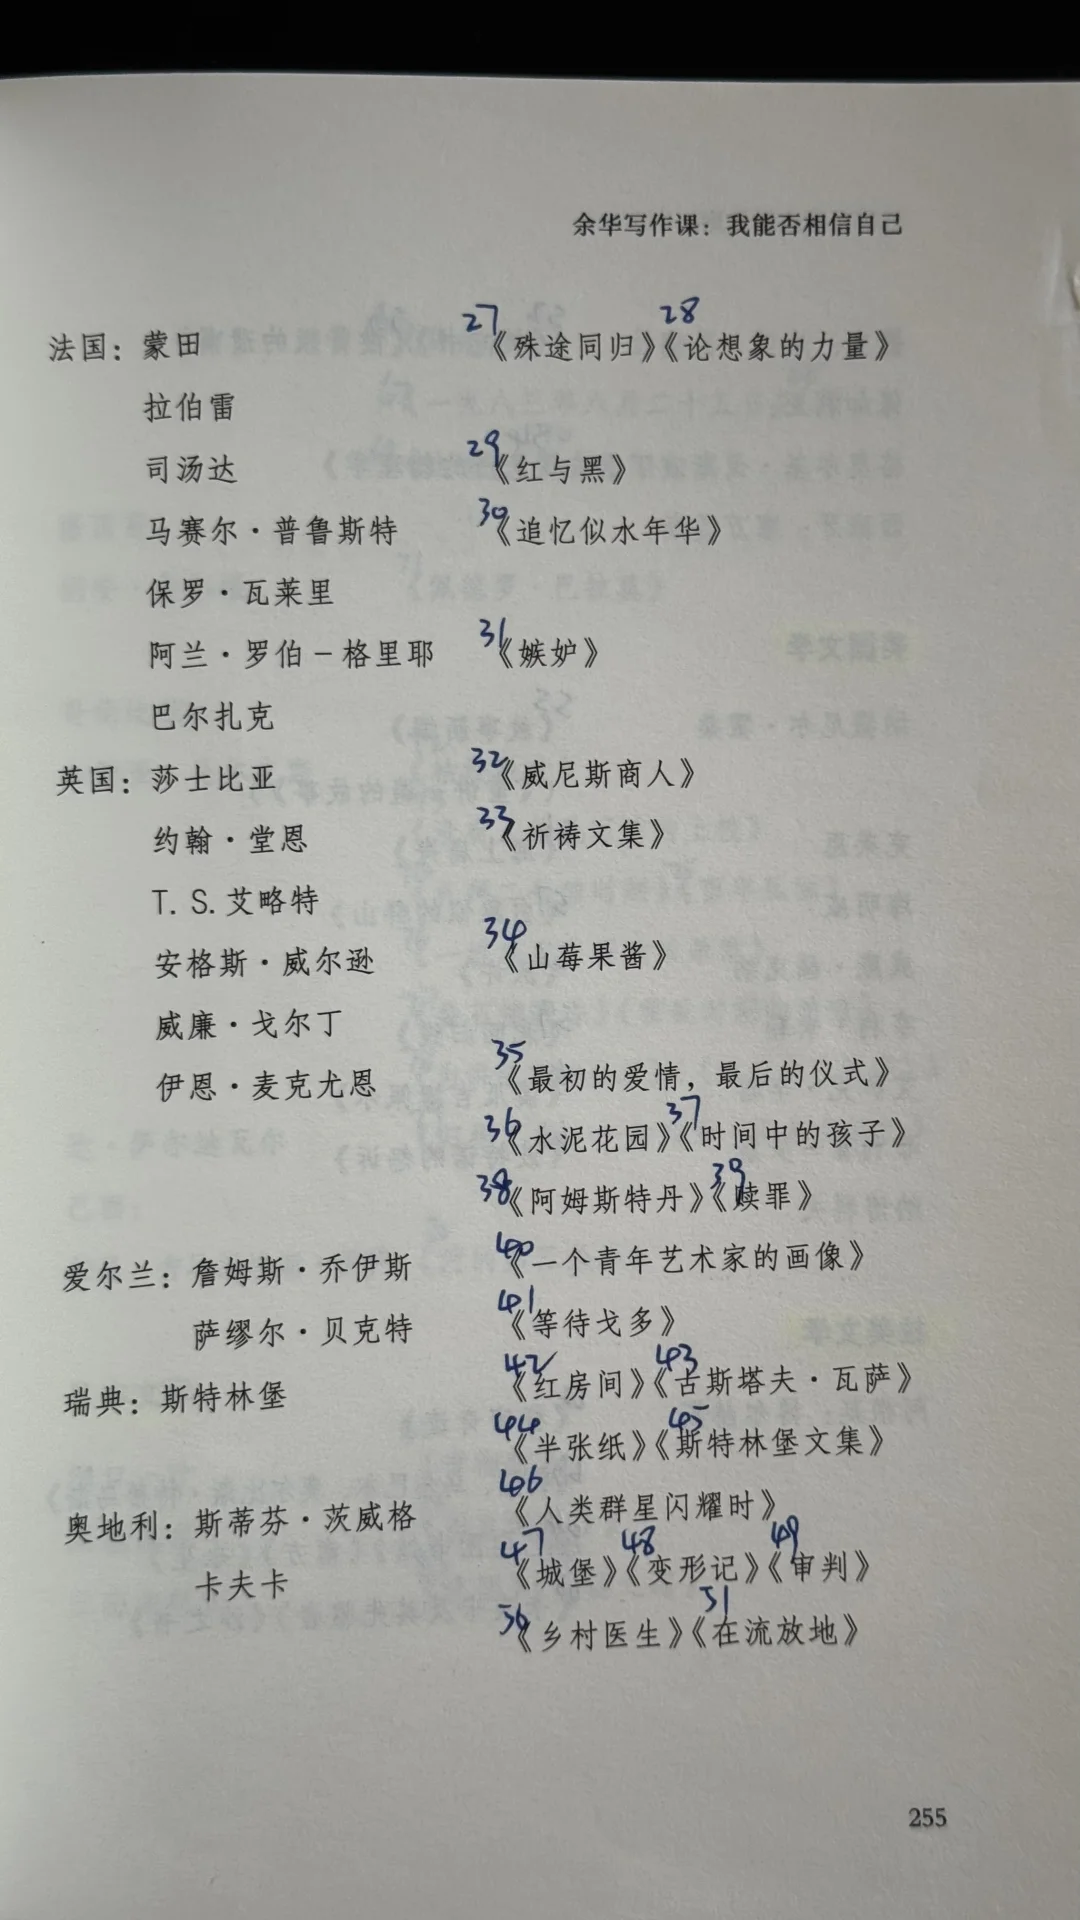 余华写作课：我能否相信自己
27 28
法国：蒙田 《殊途同归》《论想象的力量》
拉伯雷
司汤达 29《红与黑》
马赛尔·普鲁斯特 30《追忆似水年华》
保罗·瓦莱里
阿兰·罗伯－格里耶 31《嫉妒》
巴尔扎克
英国：莎士比亚 32《威尼斯商人》
约翰·堂恩 33《祈祷文集》
T. S. 艾略特
安格斯·威尔逊 34《山莓果酱》
威廉·戈尔丁
伊恩·麦克尤恩 35《最初的爱情，最后的仪式》
36《水泥花园》37《时间中的孩子》
38《阿姆斯特丹》39《赎罪》
爱尔兰：詹姆斯·乔伊斯 40《一个青年艺术家的画像》
萨缪尔·贝克特 41《等待戈多》
瑞典：斯特林堡 42《红房间》43《古斯塔夫·瓦萨》
44《半张纸》45《斯特林堡文集》
奥地利：斯蒂芬·茨威格 46《人类群星闪耀时》
卡夫卡 47《城堡》48《变形记》49《审判》
50《乡村医生》51《在流放地》
255